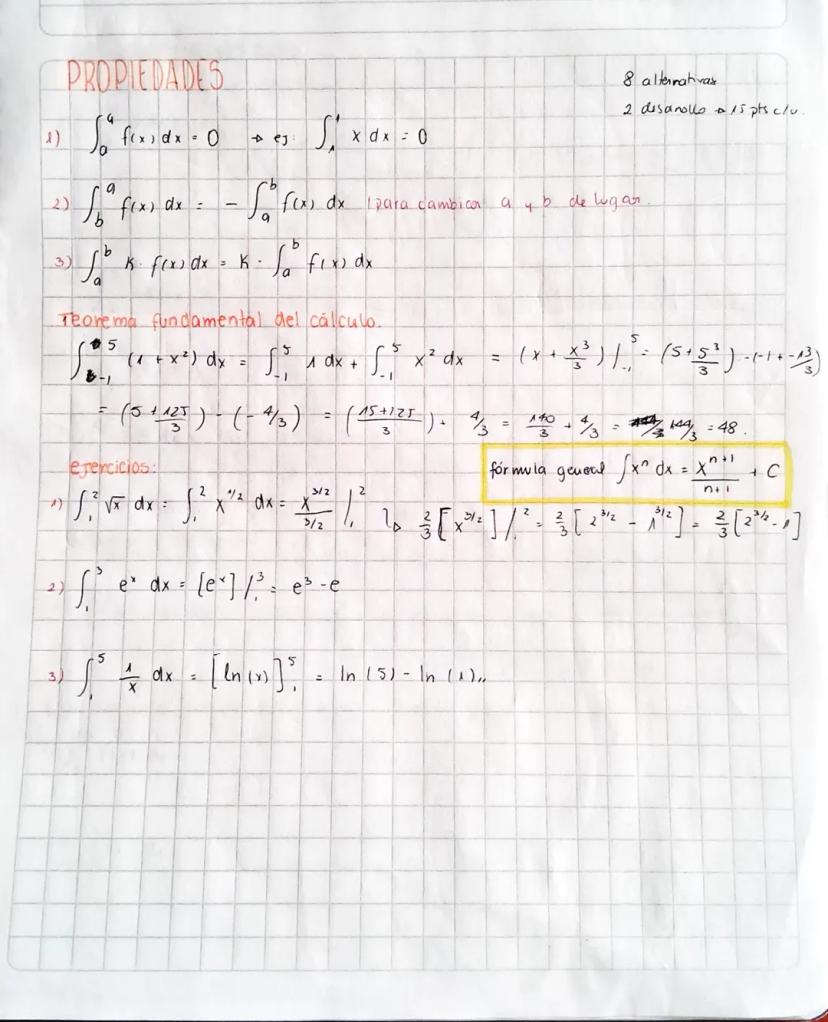 PROPIEDADES
8 alternativas
2 desarrollo → 15 pts c/u.
1) ∫ₐᵃ f(x) dx = 0 → ej: ∫₁¹ x dx = 0
2) ∫_b^a f(x) dx = - ∫_a^b f(x) dx / para cambiar a y b de lugar.
3) ∫_a^b K · f(x) dx = K · ∫_a^b f(x) dx
Teorema fundamental del cálculo.
∫_{-1}^5 (1 + x²) dx = ∫_{-1}^5 1 dx + ∫_{-1}^5 x² dx = (x + x³/3) /_{-1}^5 = (5 + 5³/3) - (-1 + -1³/3)
= (5 + 125/3) - (-4/3) = (15+125/3) + 4/3 = 140/3 + 4/3 = 144/3 = 48.
fórmula general ∫ xⁿ dx = x^{n+1}/n+1 + C
ejercicios:
1) ∫_1^2 √x dx = ∫_1^2 x^{1/2} dx = x^{3/2}/3/2 /_1^2 ↳ 2/3 [x^{3/2}] /_1^2 = 2/3 [2^{3/2} - 1^{3/2}] = 2/3 [2^{3/2} - 1]
2) ∫_1^3 eˣ dx = [eˣ] /_1^3 = e³ - e
3) ∫_1^5 1/x dx = [ln(x)]_1^5 = ln(5) - ln(1)..